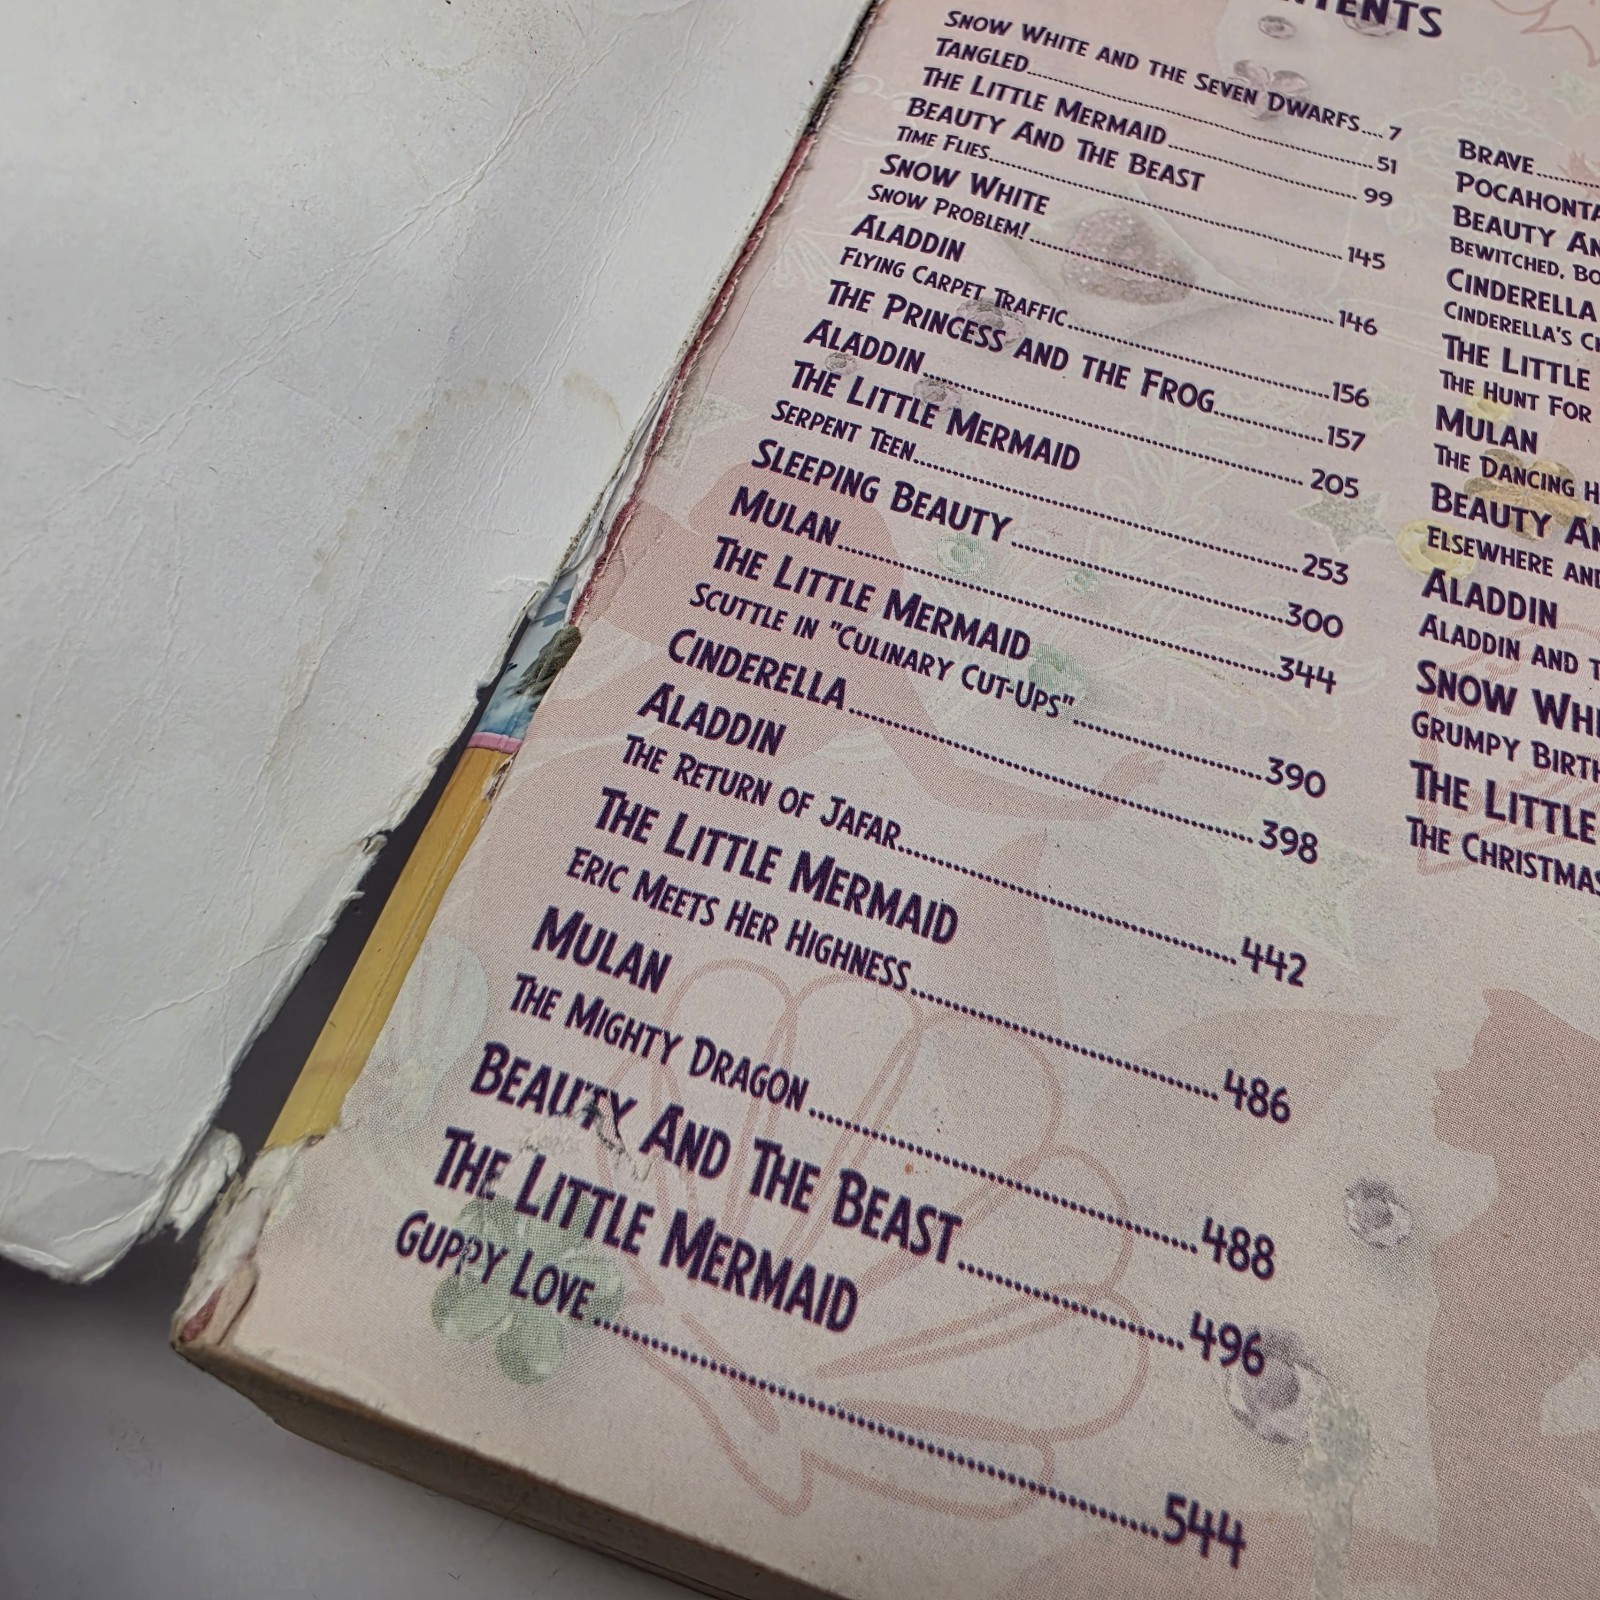 NTENTS
SNOW WHITE AND THE SEVEN DWARFS....7
TANGLED....51
THE LITTLE MERMAID....99
BEAUTY AND THE BEAST
TIME FLIES....145
SNOW WHITE
SNOW PROBLEM!....146
ALADDIN
FLYING CARPET TRAFFIC....156
THE PRINCESS AND THE FROG....157
ALADDIN....205
THE LITTLE MERMAID
SERPENT TEEN....253
SLEEPING BEAUTY....300
MULAN....344
THE LITTLE MERMAID
SCUTTLE IN "CULINARY CUT-UPS"....390
CINDERELLA....398
ALADDIN
THE RETURN OF JAFAR....442
THE LITTLE MERMAID
ERIC MEETS HER HIGHNESS....486
MULAN
THE MIGHTY DRAGON....488
BEAUTY AND THE BEAST....496
THE LITTLE MERMAID
GUPPY LOVE....544
BRAVE....
POCAHONTA
BEAUTY AN
BEWITCHED, BO
CINDERELLA
CINDERELLA'S C
THE LITTLE
THE HUNT FOR
MULAN
THE DANCING H
BEAUTY AN
ELSEWHERE AND
ALADDIN
ALADDIN AND T
SNOW WHI
GRUMPY BIRTH
THE LITTLE
THE CHRISTMAS